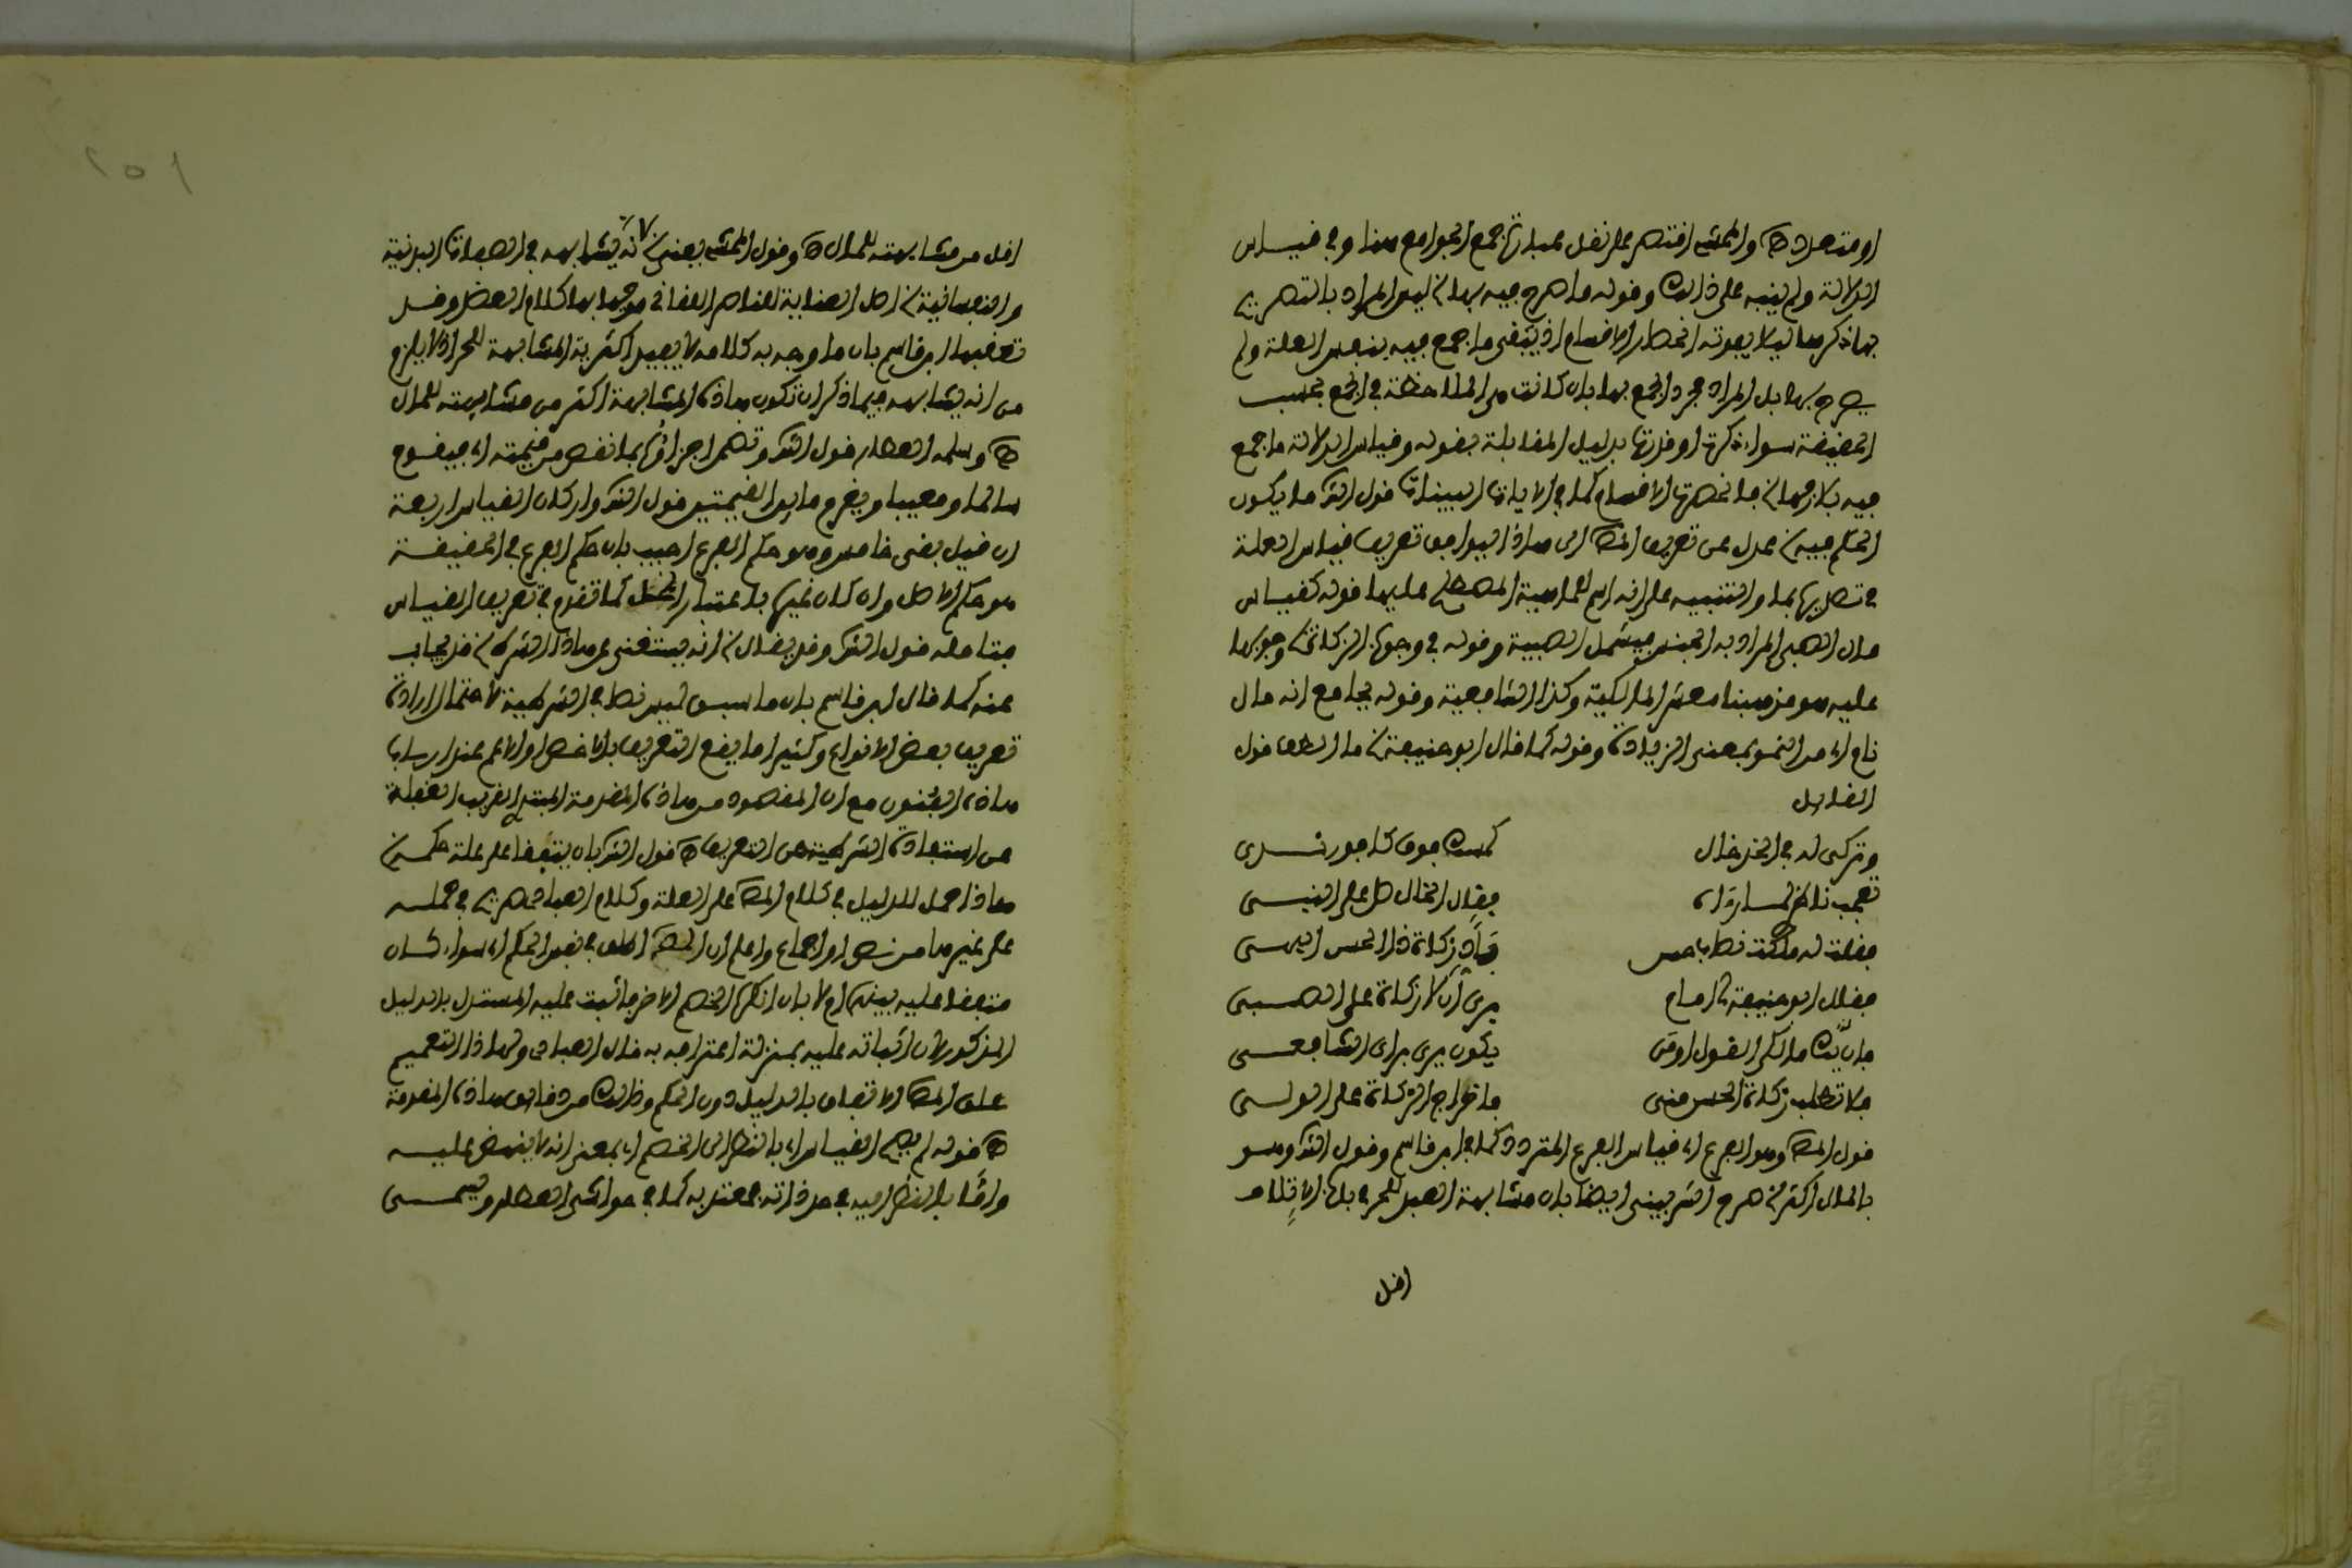 او متعددة ه والمحشي اقتصر على نقل عبارة جمع الجوامع هنا وفي قياس
الدلالة ولم ينبه على ذلك وقوله ما صرح فيه بها ليس المراد بالتصريح
بها ذكرها ليلا يفوته انحصار الاقسام اذ يبقى ما جمع فيه بنفس العلة ولم
يصرح بها بل المراد مجرد الجمع بها بان كانت هي الملاحظة في الجمع بحسب
الحقيقة سواء ذكرت او قدرت بدليل المقابلة بقوله وقياس الدلالة ما جمع
فيه بلازمها فانحصرت الاقسام كما في الايات البينات قول الشر ما يكون
الحكم فيه عدل عن تعريف المص الى هذا ليوافق تعريف قياس العلة
في تصديرها بما والتنبيه على انه اسم للماهية المصطلح عليها قوله كقياس
مال الصبي المراد به الجنس فيشمل الصبية وقوله في وجوب الزكاة وجوبها
عليه هو مذهبنا معشر المالكية وكذا الشافعية وقوله بجامع انه مال
نام اي من النمو بمعنى الزيادة وقوله كما قال ابو حنيفة ما الطف قول
القائل
وتركي له في الخد خال كمسك فوق كافور ندي
تعجب ناظري لما رءاه فقال الخال صل على النبي
فقلت له ملكت نصاب حسن فأد زكاة ذا الحسن البهي
فقال ابو حنيفة لي امام يرى ان لا زكاة على الصبي
فان يك مالكي القول او من يكون يرى براي الشافعي
فلا تطلب زكاة الحسن مني فاخراج الزكاة على الولي
قول المص وهو الفرع اي قياس الفرع المتردد كما في ابن قاسم وقول الشر وهو
بالمال اكثر صرح الشربيني ايضا بان مشابهة العبد للحر في باب الاتلاف
اقل
اقل من مشابهته للمال ه وقول المحشي يعني لانه يشابهه في الصفات البدنية
والنفسانية اصل العناية للناصر اللقاني موجها بها كلام العضد وقد
تعقبها ابن قاسم بان ما وجه به كلامه لا يفيد اكثرية المشابهة للحر اذ لا يلزم
من انه يشابهه فيما ذكر ان تكون هذه المشابهة اكثر من مشابهته للمال
ه وسلمه العطار قول الشر وتضمن اجزاؤه بما نقص من قيمته اي فيقوم
سالما ومعيبا ويغرم ما بين القيمتين قول الشر واركان القياس اربعة
ان قيل بقي خامس وهو حكم الفرع اجيب بان حكم الفرع في الحقيقة
هو حكم الاصل وان كان غيره باعتبار المحل كما تقدم في تعريف القياس
فتامله قول الشر وقد يقال انه يستغنى عن هذا الشرط قد يجاب
عنه كما قال ابن قاسم بان ما سبق ليس نصا في الشرطية لاحتمال ارادة
تعريف بعض الانواع وكثيرا ما يقع التعريف بالاخص او الاعم عند ارباب
هذه الفنون مع ان المقصود من هذه المقدمة المبتدئ القريب الغفلة
عن استفادة الشرطية من التعريف ه قول الشر بان يتفقا على علة حكمه
هذا حمل للدليل في كلام المص على العلة وكلام العبادي صريح في حمله
على غيرها من نص او اجماع واعلم ان المص اطلق في تقييد الحكم اي سواء كان
متفقا عليه بينهما ام لا بان انكره الخصم الاخر فاثبت عليه المستدل بالدليل
المذكور لان اثباته عليه بمنزلة اعترافه به قال العبادي ولهذا التعميم
علق المص الاتفاق بالدليل دون الحكم وذلك من دقائق هذه المقدمة
ه قوله لم يصح القياس اي بالنظر الى الخصم اي بمعنى انه لا ينهض عليه
واما بالنظر اليه في حد ذاته فمعتد به كما في حواشي العطار ويسمى